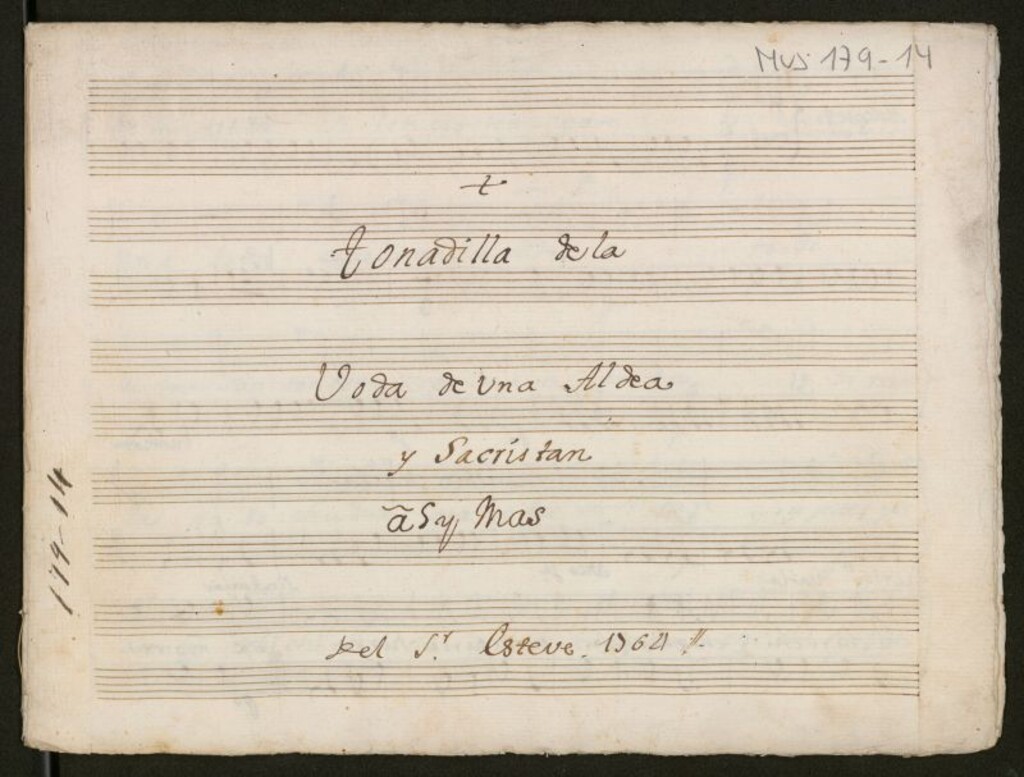 Mus 179-14
+
tonadilla de la
Voda de Vna Aldea
y Sacristan
ã 5 y Mas
Del S.r Esteve. 1764 //.
179-14